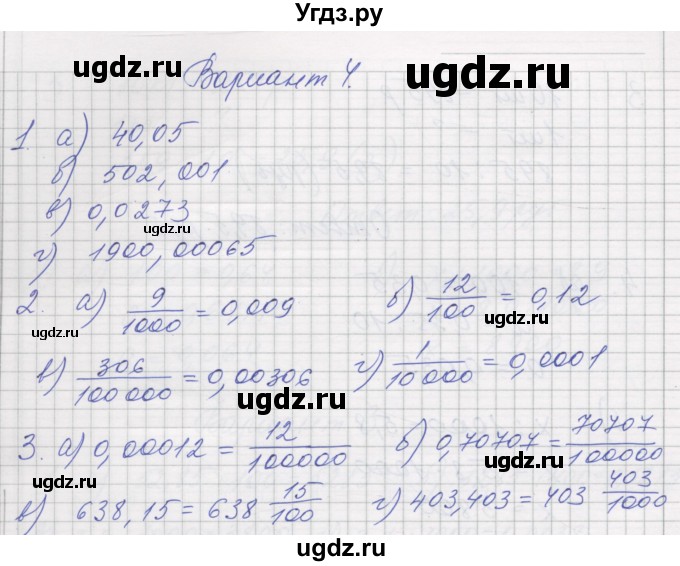 Угдз.ру
ugdz.ru ugdz.ru
Вариант 4.
1. а) 40,05
б) 502,001
ugdz.ru
в) 0,0273
ugdz.ru
г) 1900,00065
2. а) 9/1000 = 0,009 б) 12/100 = 0,12
ugdz.ru
в) 306/100000 = 0,00306 г) 1/10000 = 0,0001
ugdz.ru
3. а) 0,00012 = 12/100000 б) 0,70707 = 70707/100000
ugdz.ru
в) 638,15 = 638 15/100 г) 403,403 = 403 403/1000
ugdz.ru